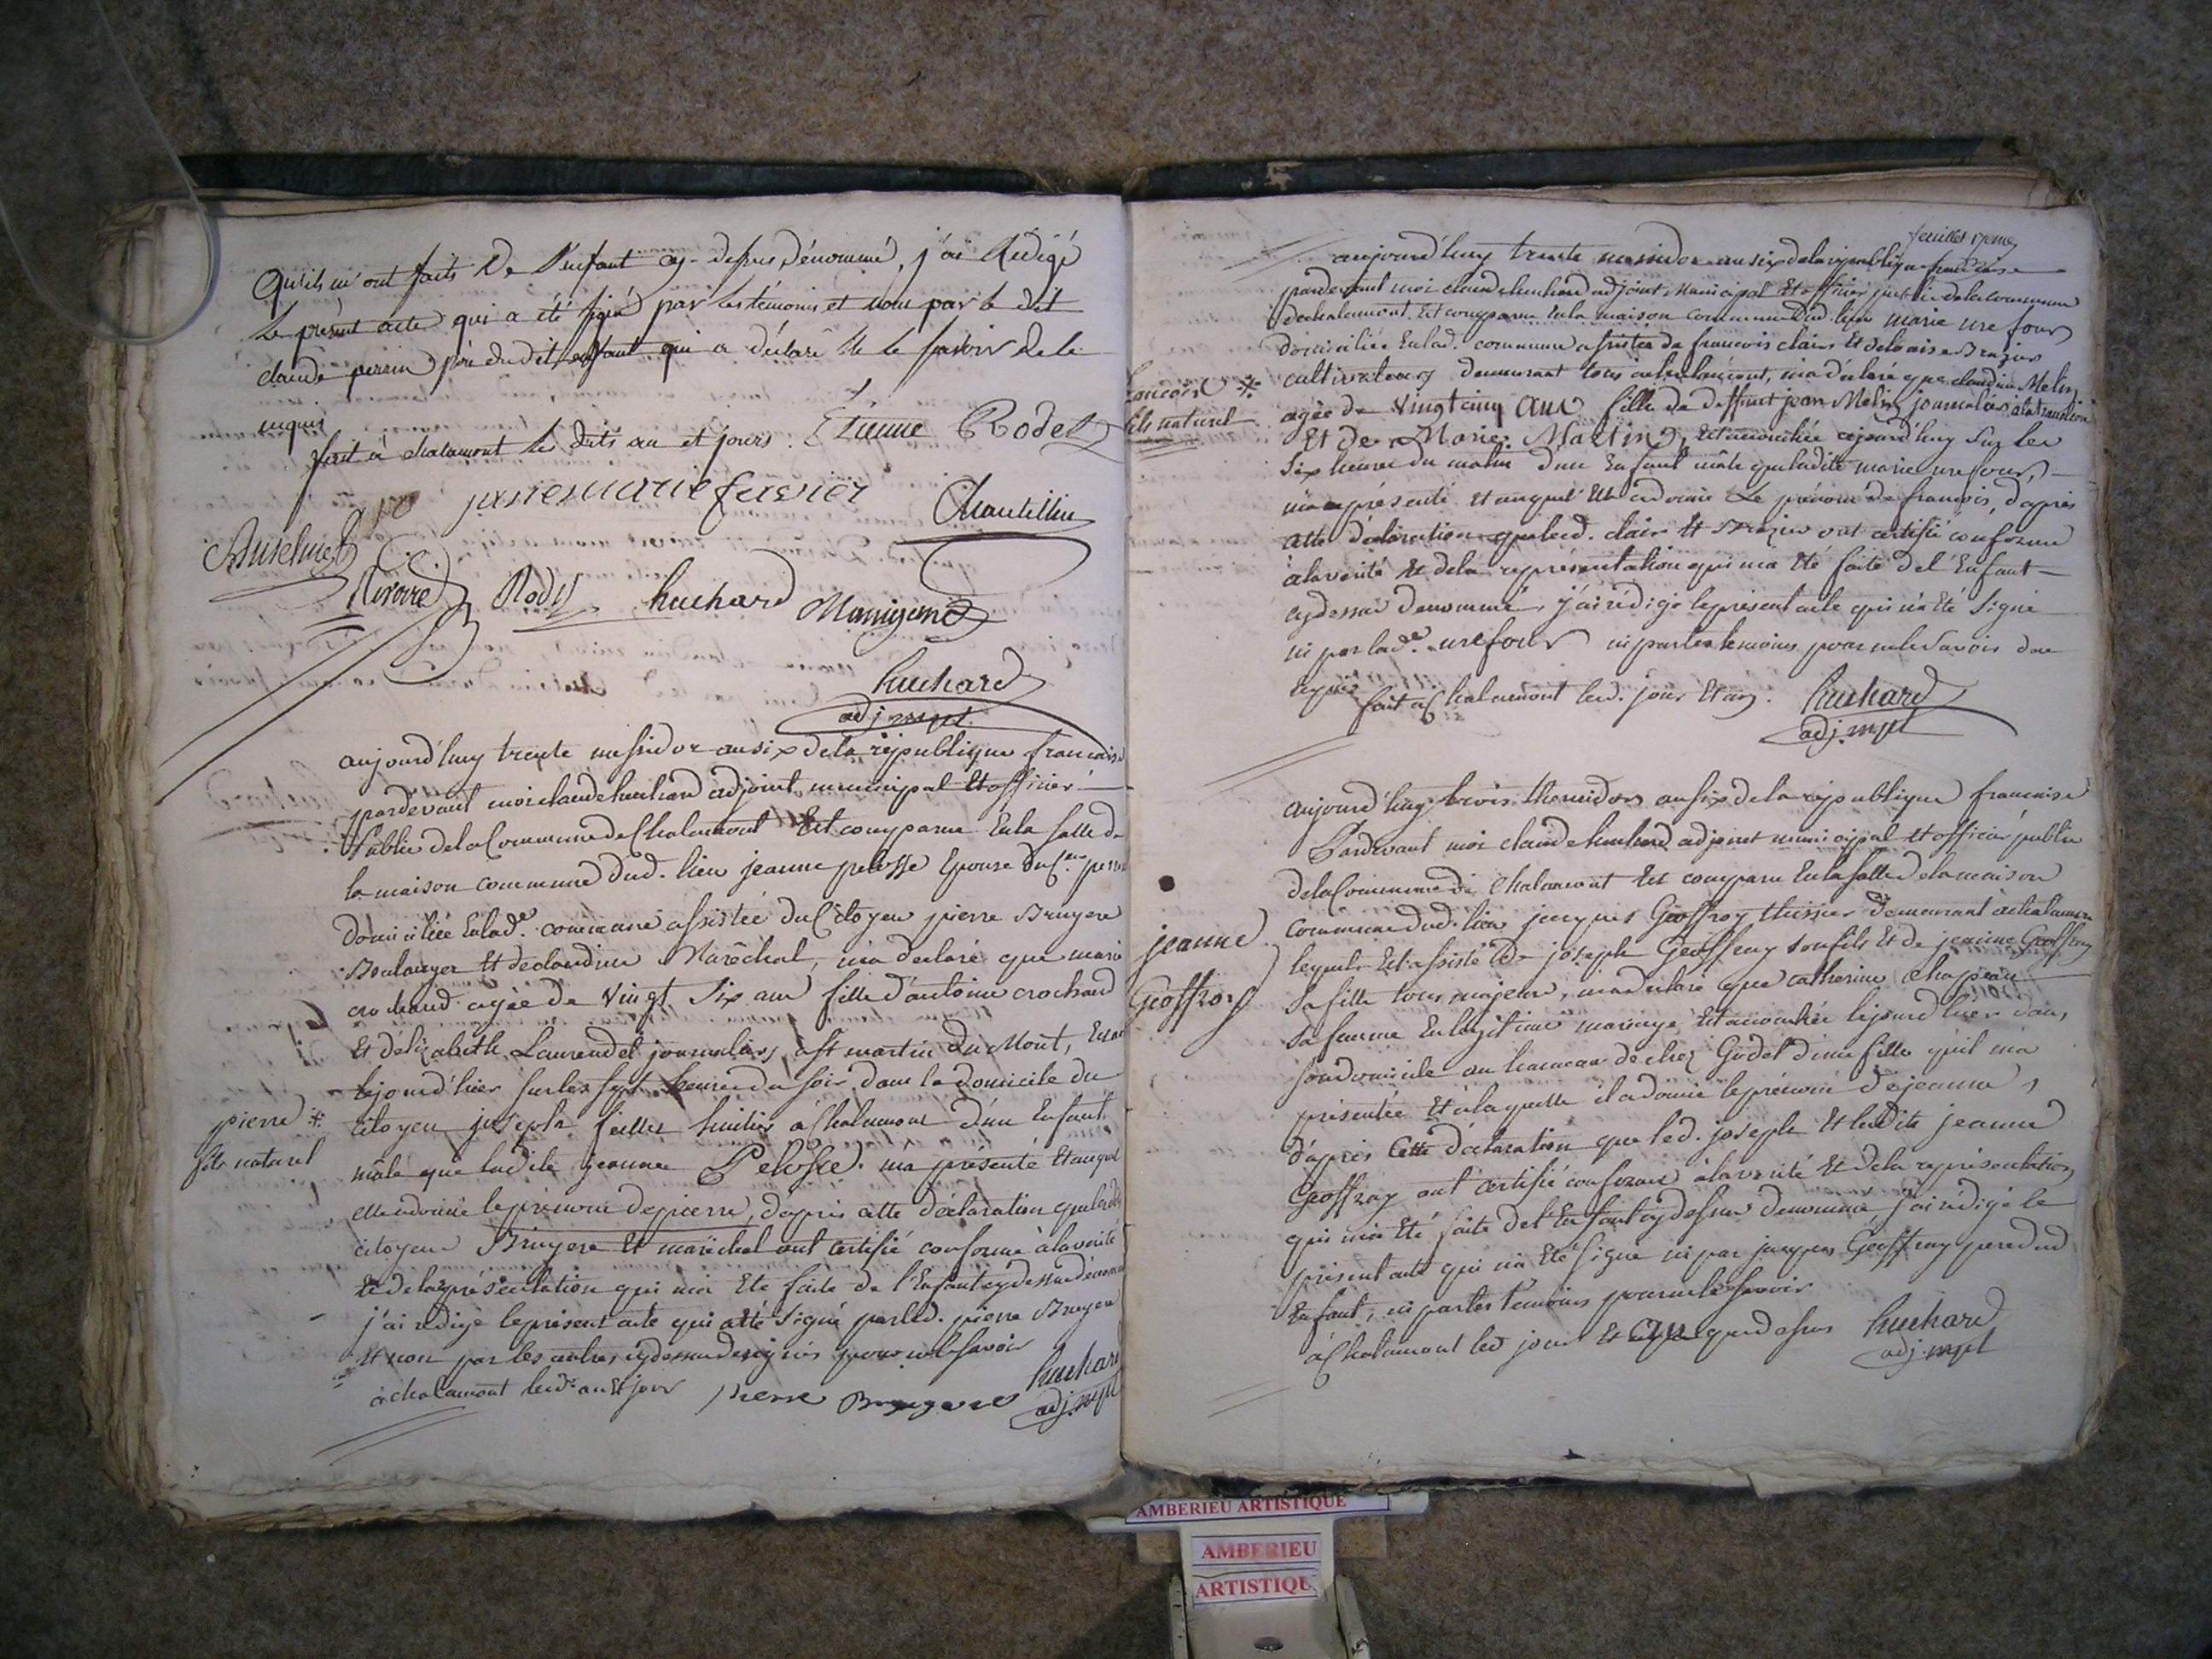 qu'ils m'ont faits de l'enfant cy-dessus dénommé, j'ai Rédigé
le présent acte qui a été signé par les témoins et non par le dit
claude perrin père dudit enfant qui a déclaré ne le savoir de ce
requis
fait à chalamont les dits an et jours. Etienne Rodet
Chantillin
Anselme
Rodet huchard
huchard
adj. mpl
aujourd'huy trente messidor an six de la république francaise
pardevant moi claude huchard adjoint municipal Et officier
Public de la Commune de Chalamont Est comparue En la salle de
la maison commune dud. lieu jeanne pelosse Epouse du C.en
domiciliée En lad.e commune assistée du Citoyen pierre Bruyere
Boulanger Et de claudine Maréchal, m'a declaré que marie
crochand agée de vingt Six ans fille d'antoine crochand
Et d'elizabeth Laurendel journaliers a st martin du Mont, Est
le jour d'hier sur les sept heures du soir dans le domicile du
Citoyen joseph huilier à Chalamont d'un Enfant
pierre *
fils naturel
mâle que ladite jeanne Pelosse m'a présenté Et auquel
elle a donné le prénom de pierre, d'après cette déclaration que lesdits
citoyens Bruyere Et maréchal ont certifié conforme à la verité
Et de la représentation qui m'a Eté faite de l'Enfant cydessus dénommé
j'ai redigé le présent acte qui a été signé par led. pierre Bruyere
Et non par les autres cydessus pour ne le savoir
à chalamont lesd. an Et jour pierre Bruyere huchard
adj. mpl
feuillet 17eme
aujourd'huy trente messidor an six de la république francaise
pardevant moi claude huchard adjoint municipal Et officier public de la commune
de chalamont Est comparue En la maison commune dud. lieu marie urefour
domiciliée En lad. commune assistée de francois clair Et de Brazier
cultivateurs demeurant tous a chalamont, m'a déclaré que claudine Melin
francois *
fils naturel
agée de vingt cinq ans fille de deffunt jean Melin journalier
Et de Marie Martin, Est accouchée aujourd'huy sur les
Six heures du matin d'un Enfant mâle que ladite marie urefour
m'a présenté Et auquel Elle a donné le prénom de francois, d'après
cette déclaration que lesd. clair Et Brazier ont certifié conforme
à la verité Et de la représentation qui m'a Eté faite de l'Enfant
cydessus denommé, j'ai rédigé le présent acte qui n'a Eté Signé
ni par lad.e urefour ni par les temoins pour ne le savoir de ce
requis
fait à Chalamont lesd. jour Et an. huchard
adj. mpl
aujourd'huy trois thermidor an six de la république francaise
Pardevant moi claude huchard adjoint municipal Et officier public
de la Commune de Chalamont Est comparu En la salle de la maison
commune dud. lieu jacques Geoffray thissier demeurant à chalamont
jeanne
Geoffroy
lequel Est assisté de joseph Geoffray son fils Et de jeanne Geoffray
sa fille tous majeurs, m'a declaré que catherine chapeau
sa femme En legitime mariage, Est accouchée le jour d'hier dans
son domicile au hameau de chez Godet d'une fille qu'il m'a
présentée Et à laquelle il a donné le prénom de jeanne,
d'après Cette déclaration que led. joseph Et ladite jeanne
Geoffray ont certifié conforme à la verité Et de la représentation
qui m'a Eté faite de l'Enfant cydessus denommé j'ai rédigé le
présent acte qui n'a Eté signé ni par jacques Geoffray pere dud
Enfant, ni par les temoins pour ne le savoir
à Chalamont led jour Et an que dessus huchard
adj. mpl
AMBERIEU ARTISTIQUE
AMBERIEU
ARTISTIQUE